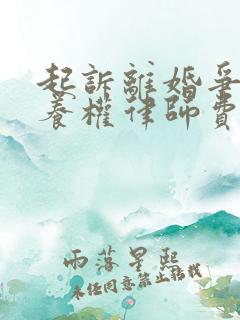 起訴離婚爭
養權律師費
雨落星熙
未經同意禁止轉載